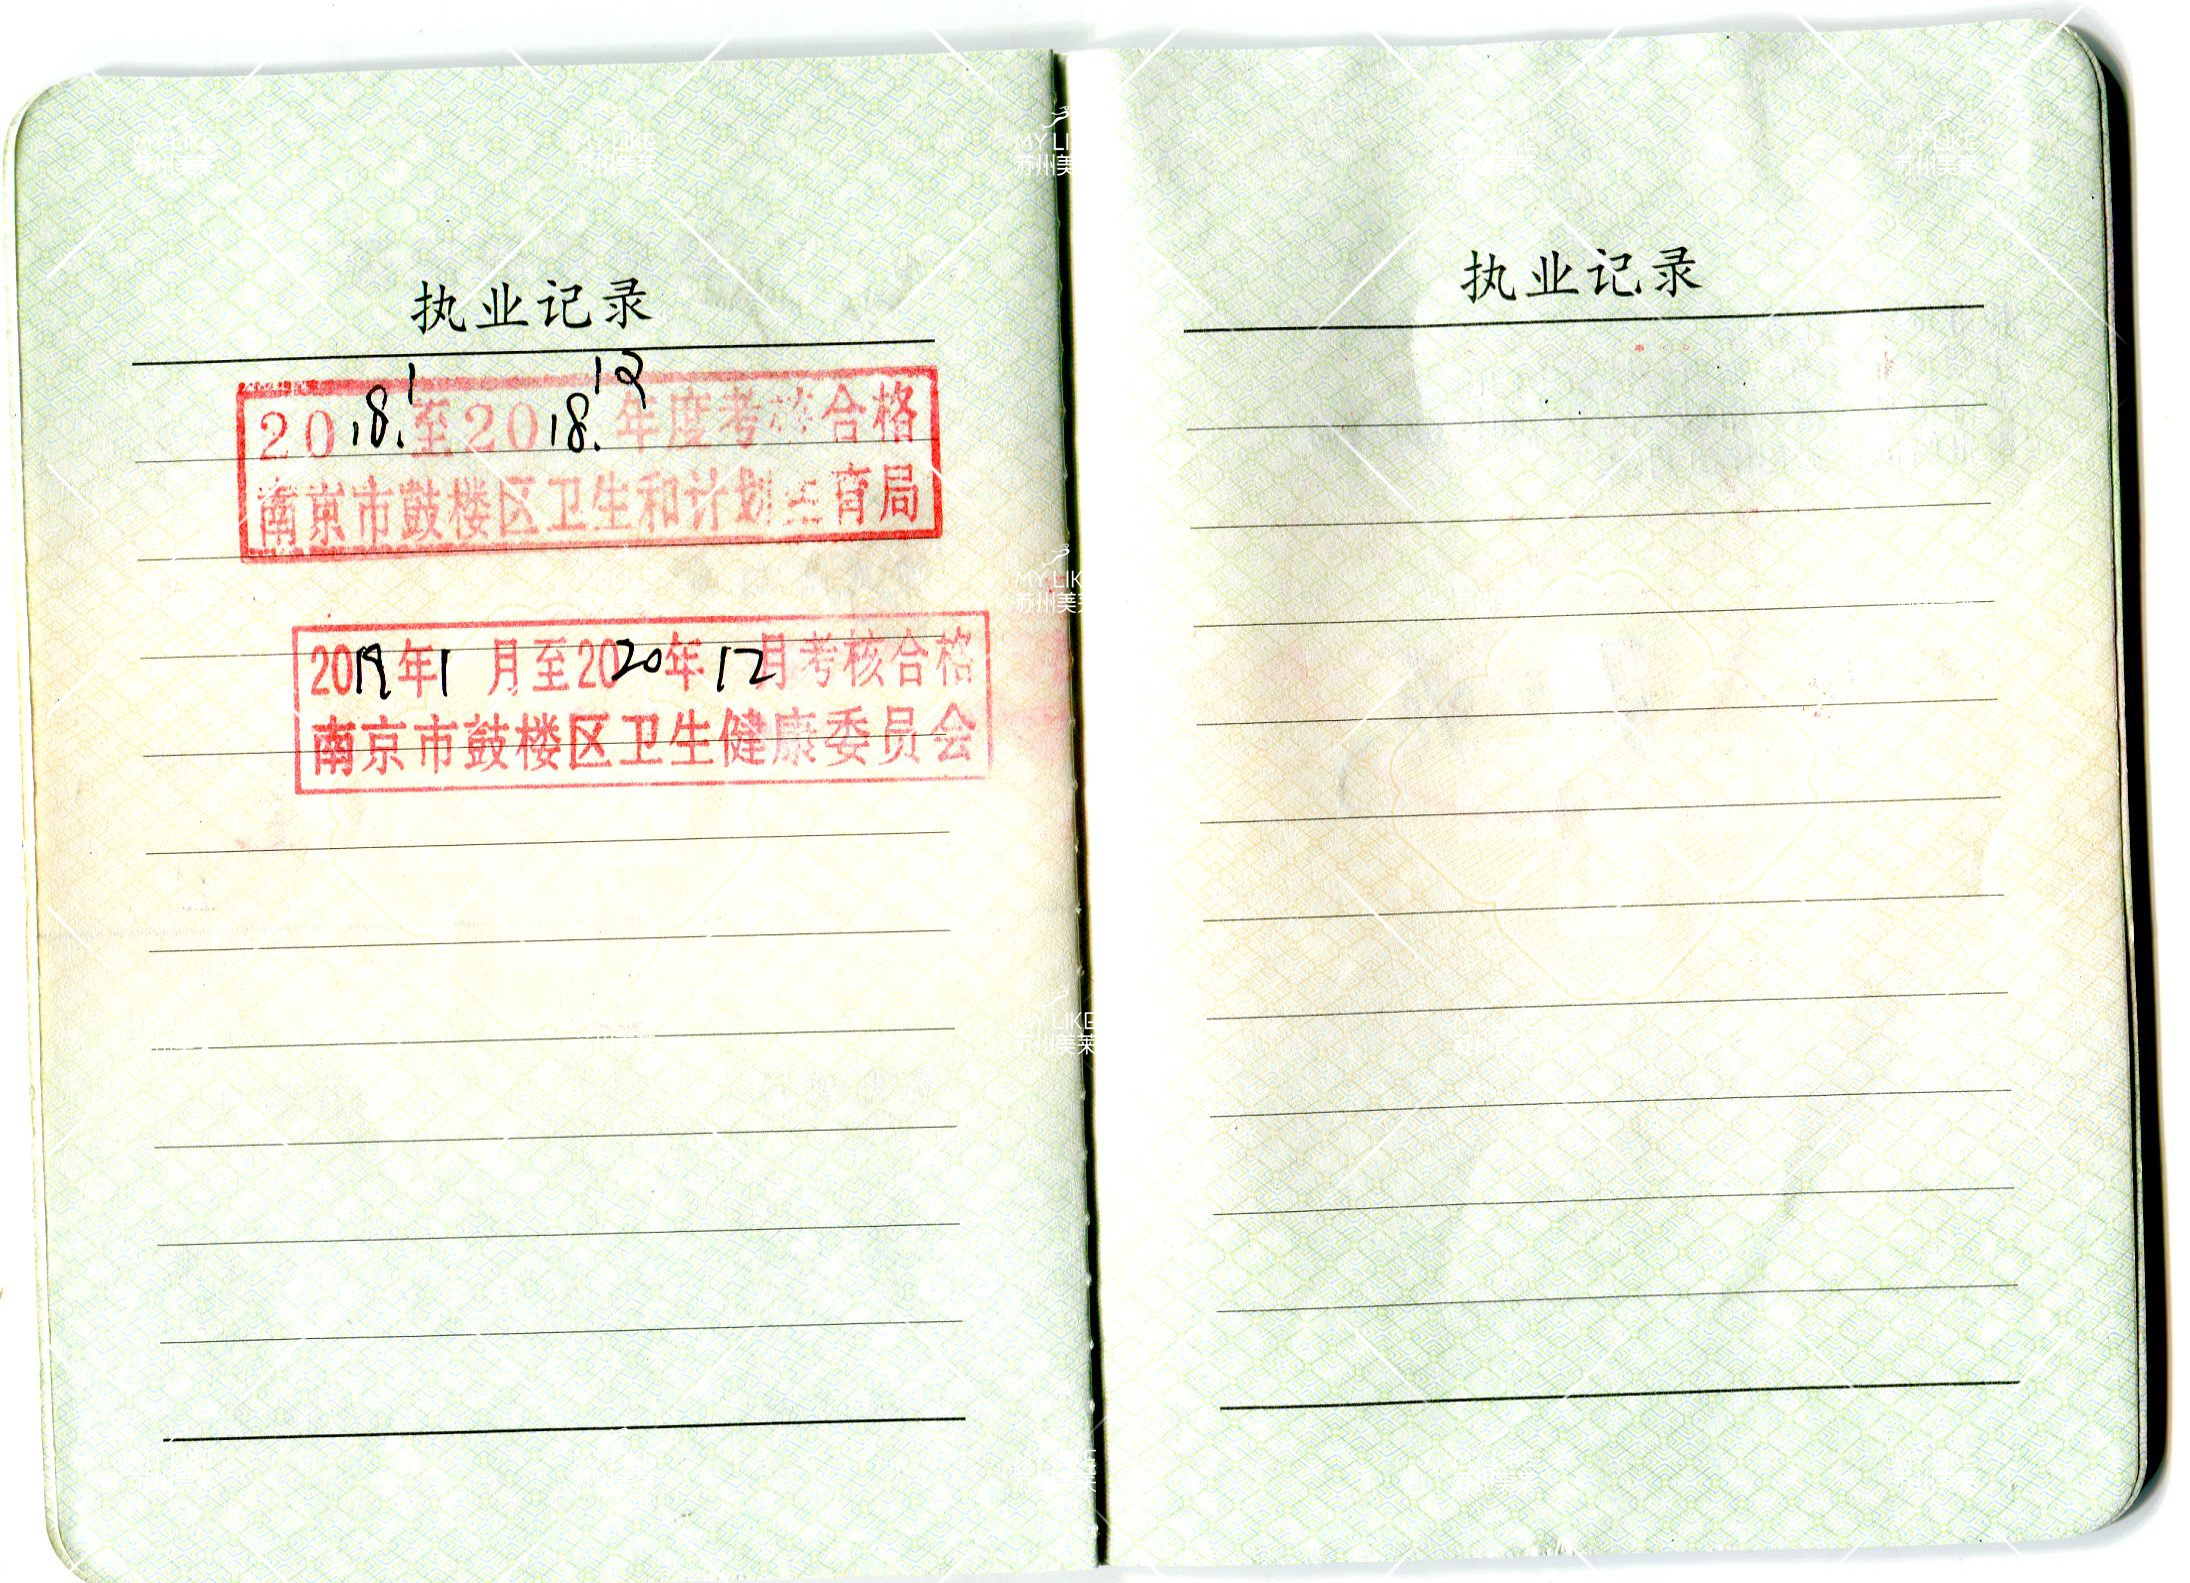 执业记录
2018.1至2018.12年度考核合格
南京市鼓楼区卫生和计划生育局
2019年1月至2020年12月考核合格
南京市鼓楼区卫生健康委员会
执业记录
MY LIKE
苏州美莱